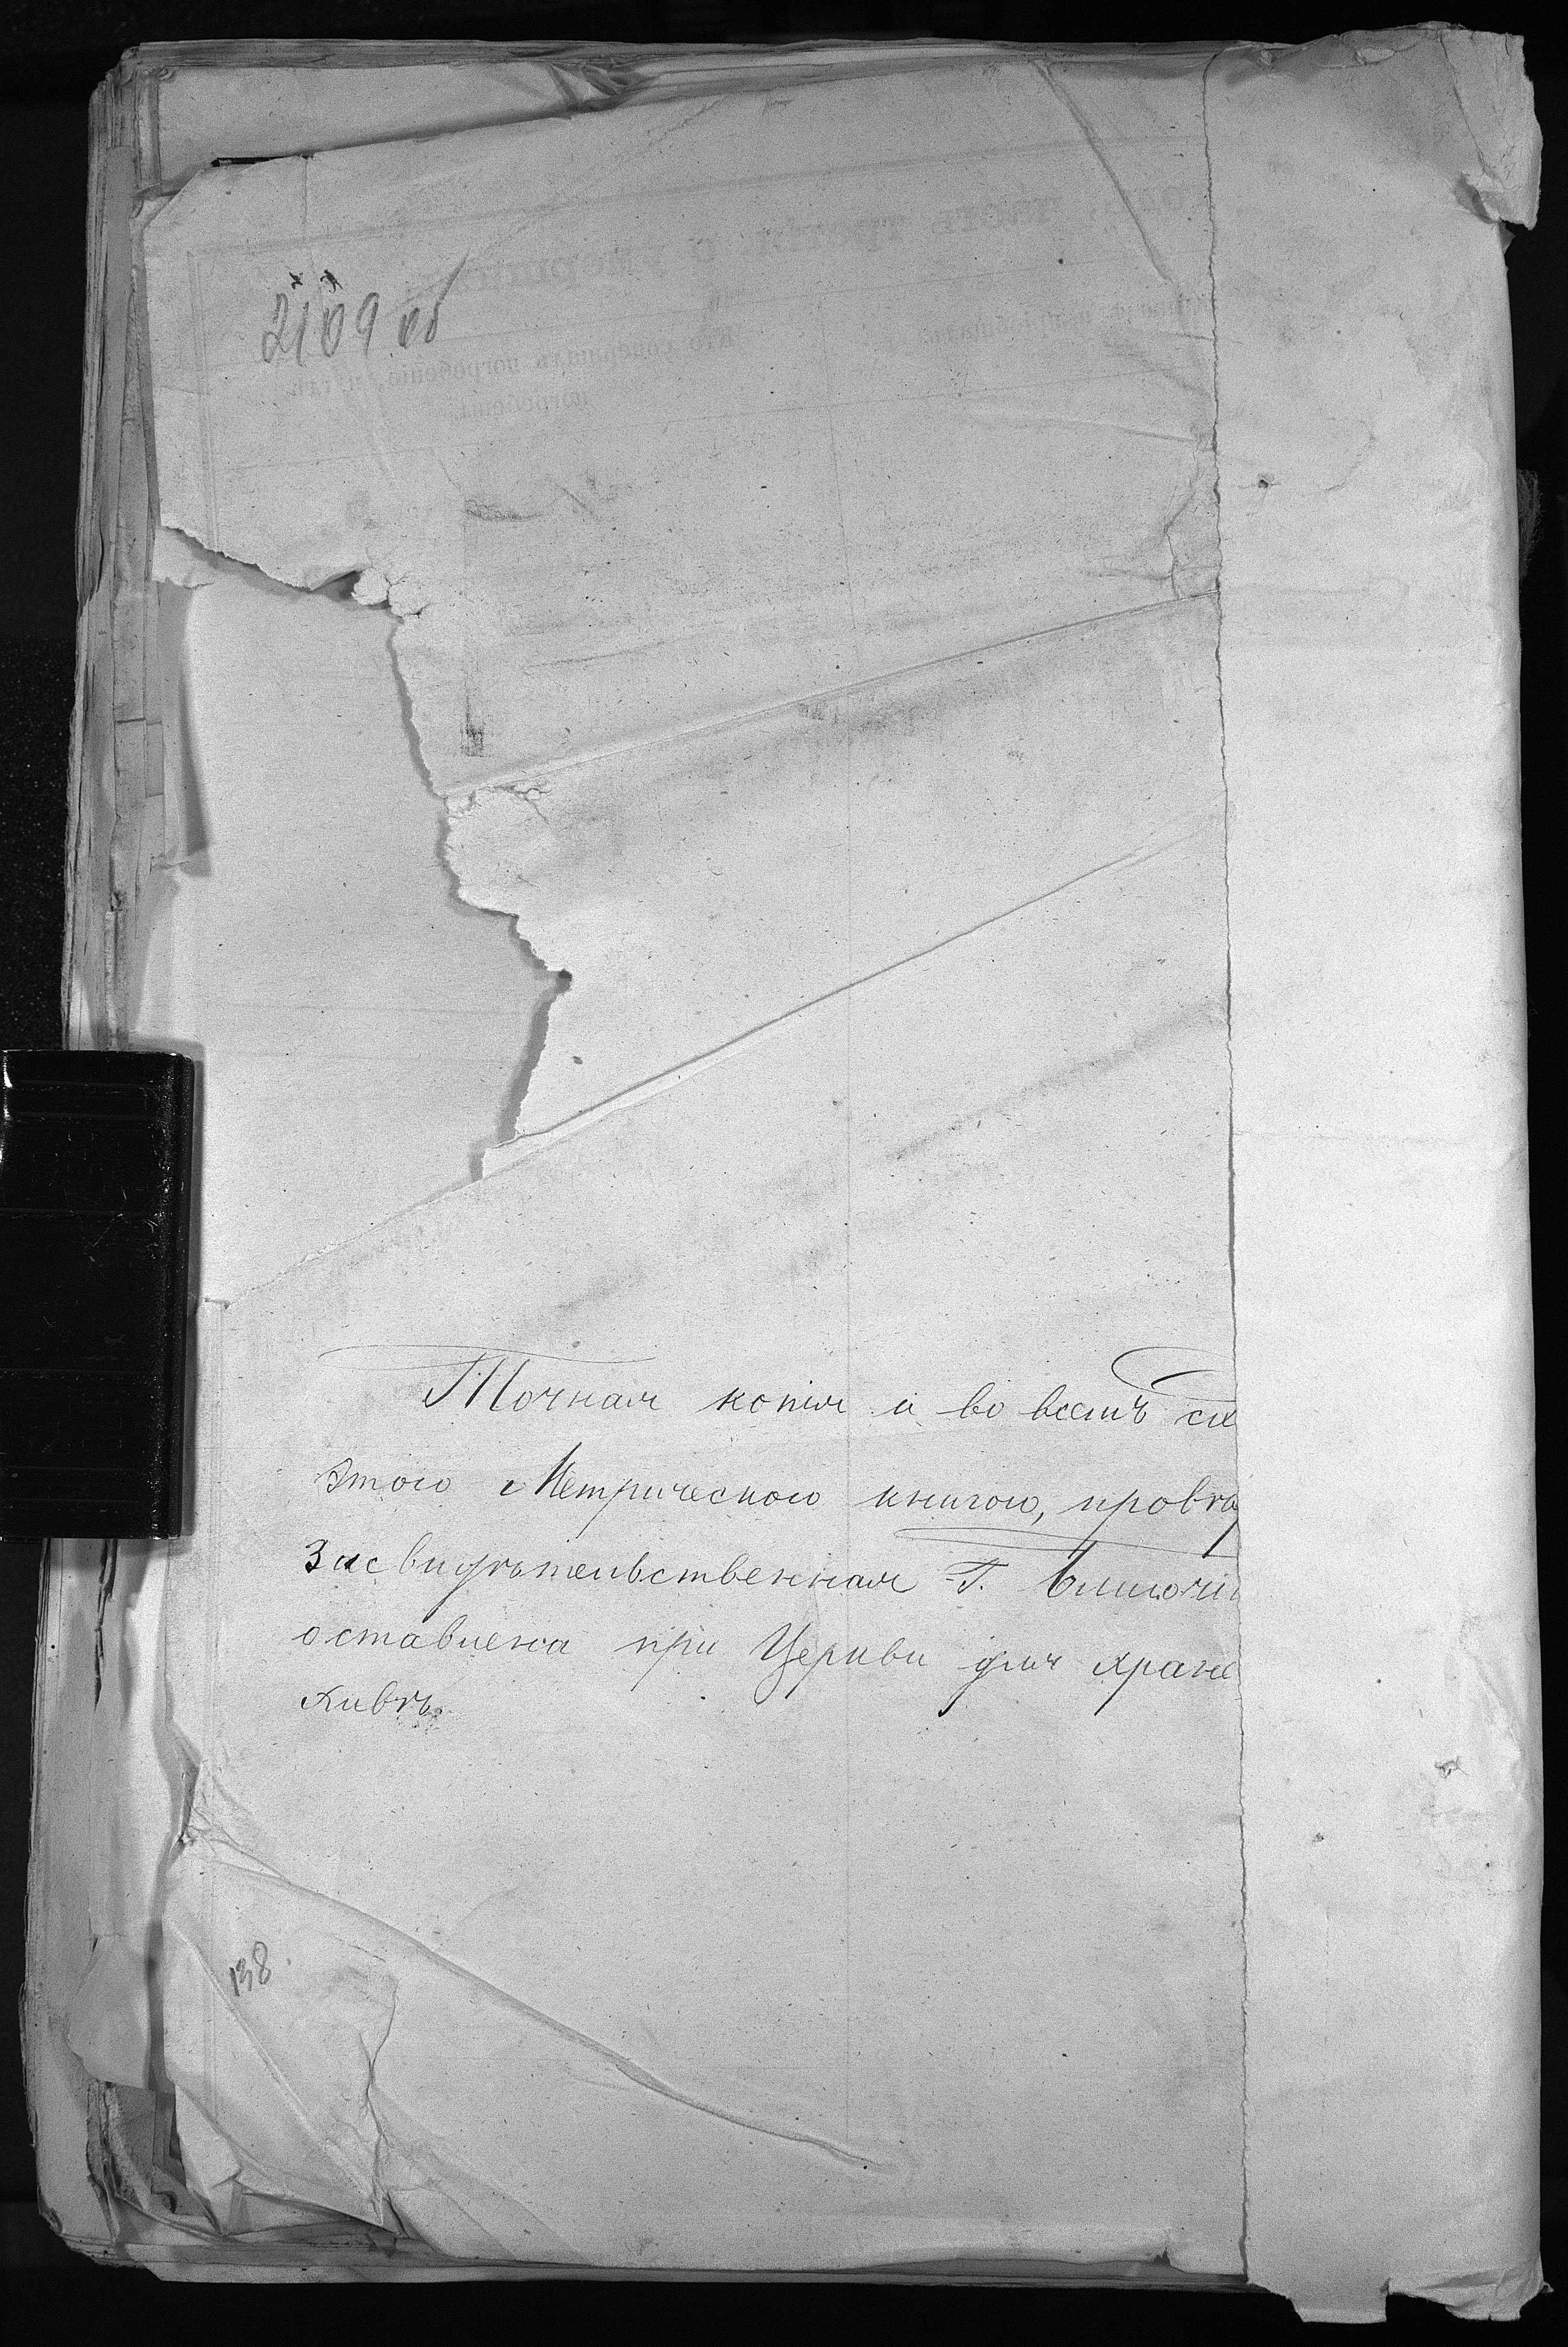 2109 об
Точная копія и во всемъ сх
этою Метрическою книгою, провѣр
Засвидѣтельственная Г. Благочи
оставлена при Церкви для хране
хивѣ.
138.